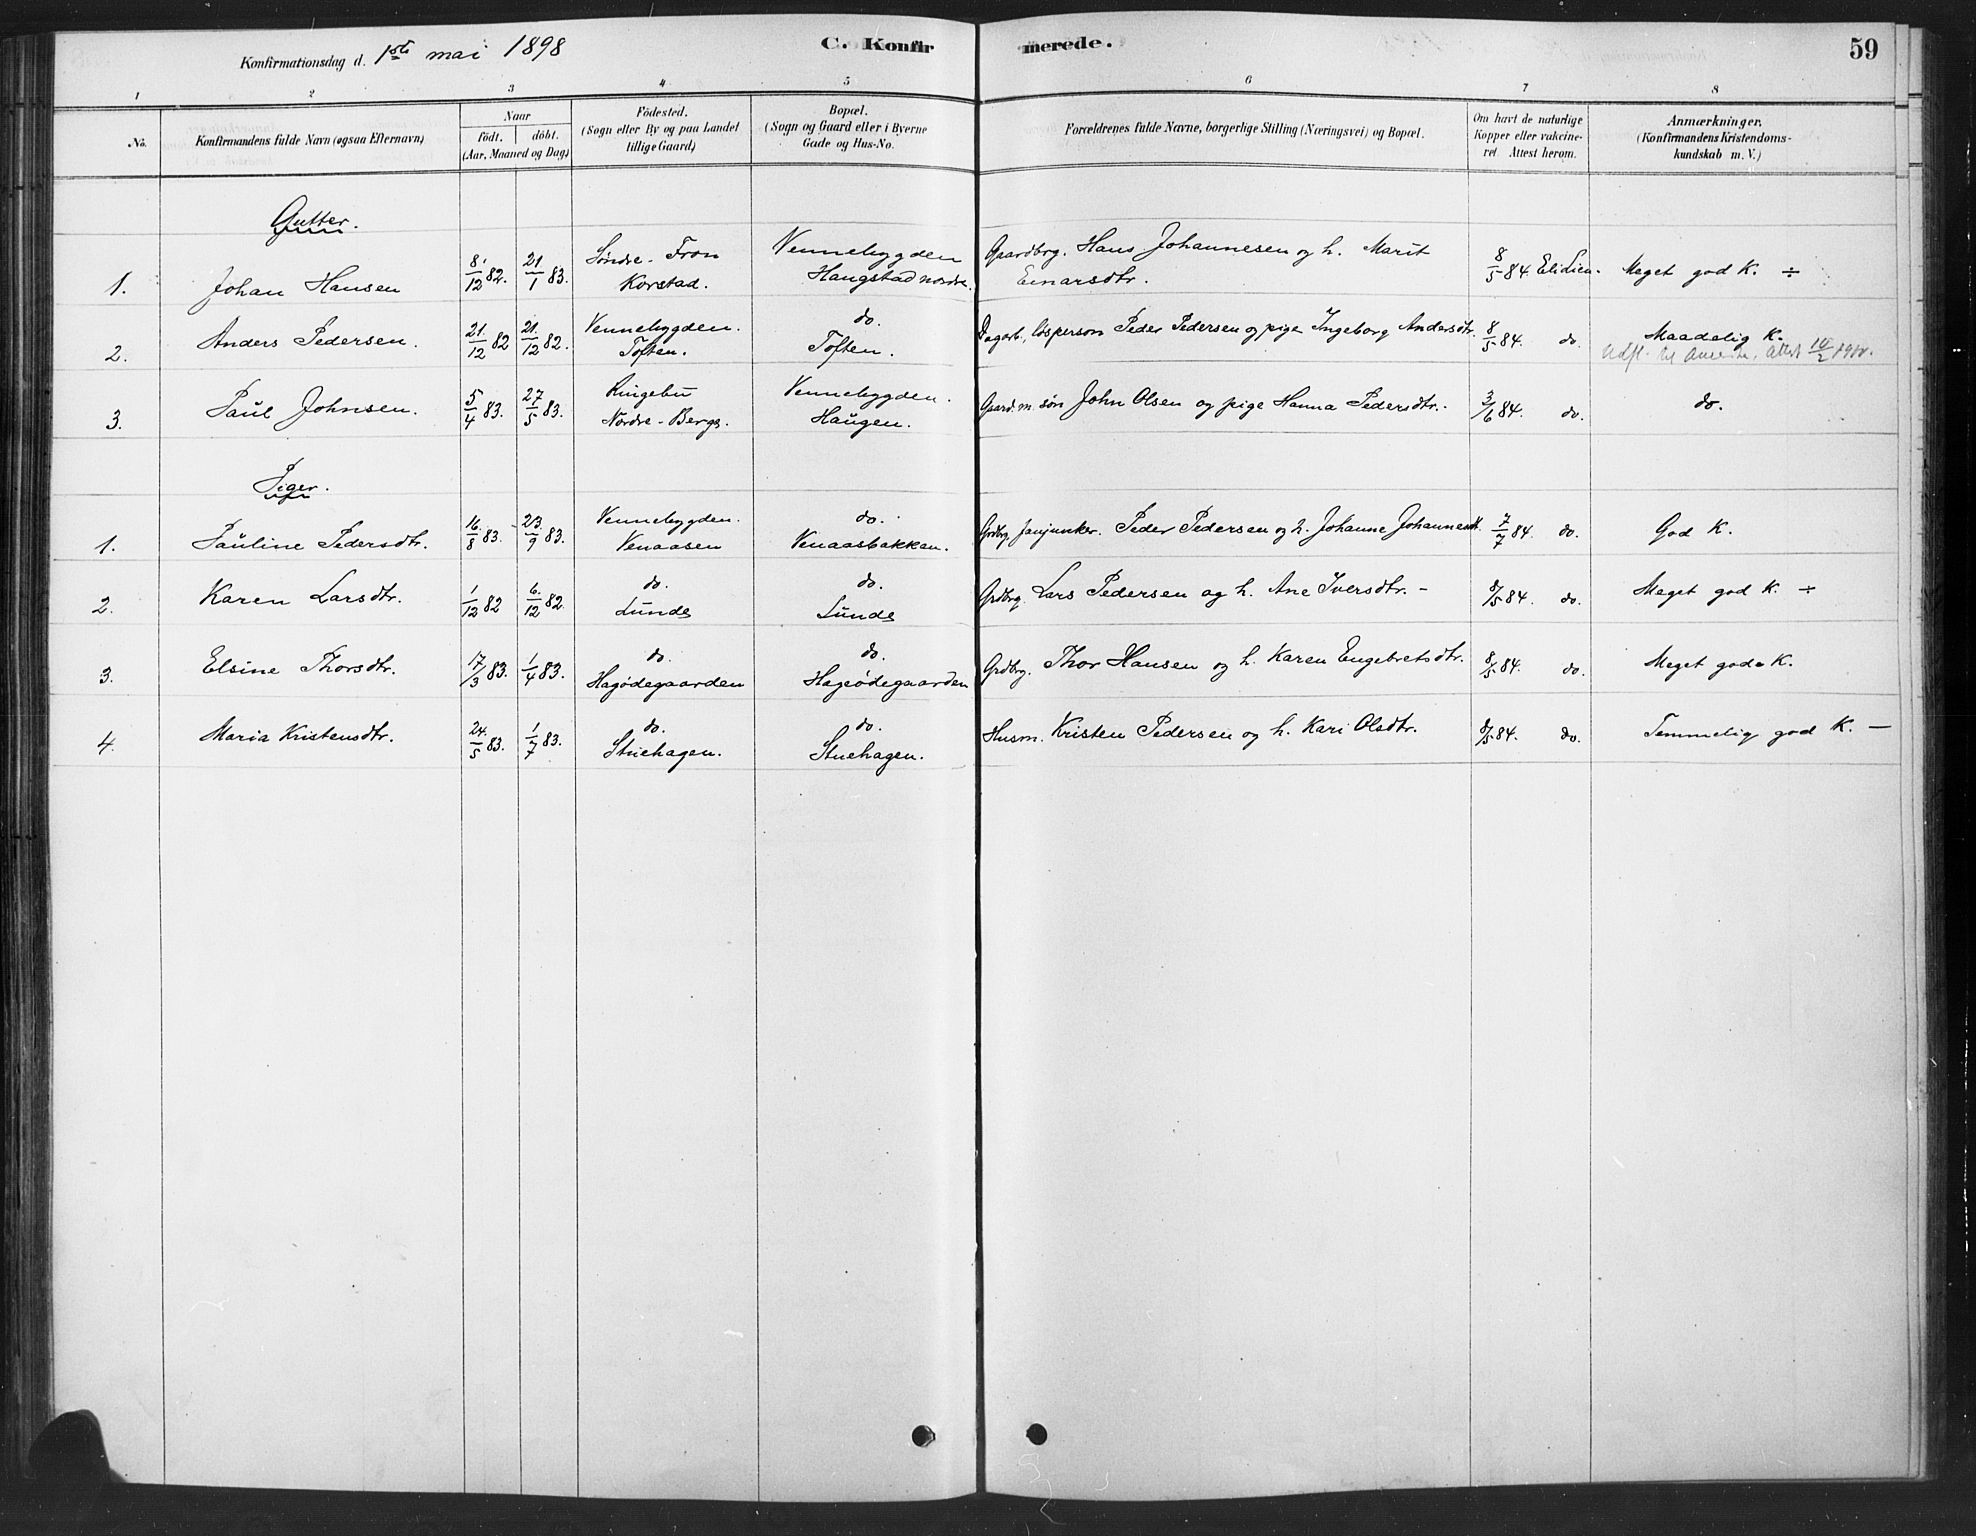 Konfirmationsdag d. 1ste mai 1898 C. Konfirmerede. 59
1 2 3 4 5 6 7 8
No. Konfirmandens fulde Navn (ogsaa Efternavn) Naar födt. döbt. (Aar, Maaned og Dag) Födested. (Sogn eller By og paa Landet tillige Gaard) Bopæl. (Sogn og Gaard eller i Byerne Gade og Hus-No. Forældrenes fulde Navne, borgerlige Stilling (Næringsvei) og Bopæl. Om havt de naturlige Kopper eller vakcineret. Attest herom. Anmærkninger. (Konfirmandens Kristendomskundskab m. V.)
Gutter.
1. Johan Hansen 8/12 82. 21/1 83. Søndre-Fron Korstad. Vennebygden Haugstad nordre. Gaardbrg. Hans Johannesen og h. Marit Einarsdtr. 8/5 84. Elidien. Meget god K. ÷
2. Anders Pedersen. 21./12 82 21./12 82. Vennebygden. Toften. do. Toften. Dagarb., løsperson Peder Pedersen og pige Ingeborg Andersdtr. 8/5 84. do. Maadelig K.
Udfl. til Amerika, attest 10/2 1910.
3. Paul Johnsen. 5/4 83. 27/5 83. Ringebu Nordre-Berge. Vennebygden. Haugen. Gaard.m. søn John Olsen og pige Hanna Pedersdtr. 3/6 84. do. do.
Piger.
1. Pauline Pedersdtr. 16./8 83. 23./9 83. Vennebygden. Venaasen do. Venaasbakken. Grdbrg. Peder Pedersen og h. Johanne Johannesdt. 7/7 84. do. God K.
2. Karen Larsdtr. 1/12 82 6./12 82. do. Lunde do. Lunde Grdbrg. Lars Pedersen og h. Ane Iversdtr. - 8/5 84. do. Meget god K. ÷
3. Elsine Thorsdtr. 17/3 83. 1/4 83. do. Hagødegaarden do. Hageødegaarden Grdbrg. Thor Hansen og h. Karen Engebretsdtr. 8/5 84. do. Meget god K.
4. Maria Kristensdtr. 24./5 83. 1/7 83. do. Stuehagen. do. Stuehagen. Husm. Kristen Pedersen og h. Kari Olsdtr. 8/5 84. do. Temmelig god K. —